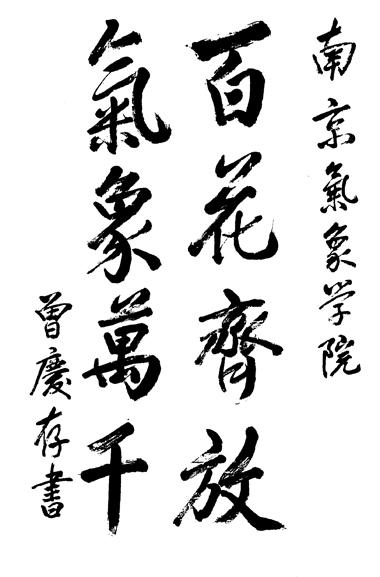 南京氣象学院
百花齊放
氣象萬千
曾慶存書